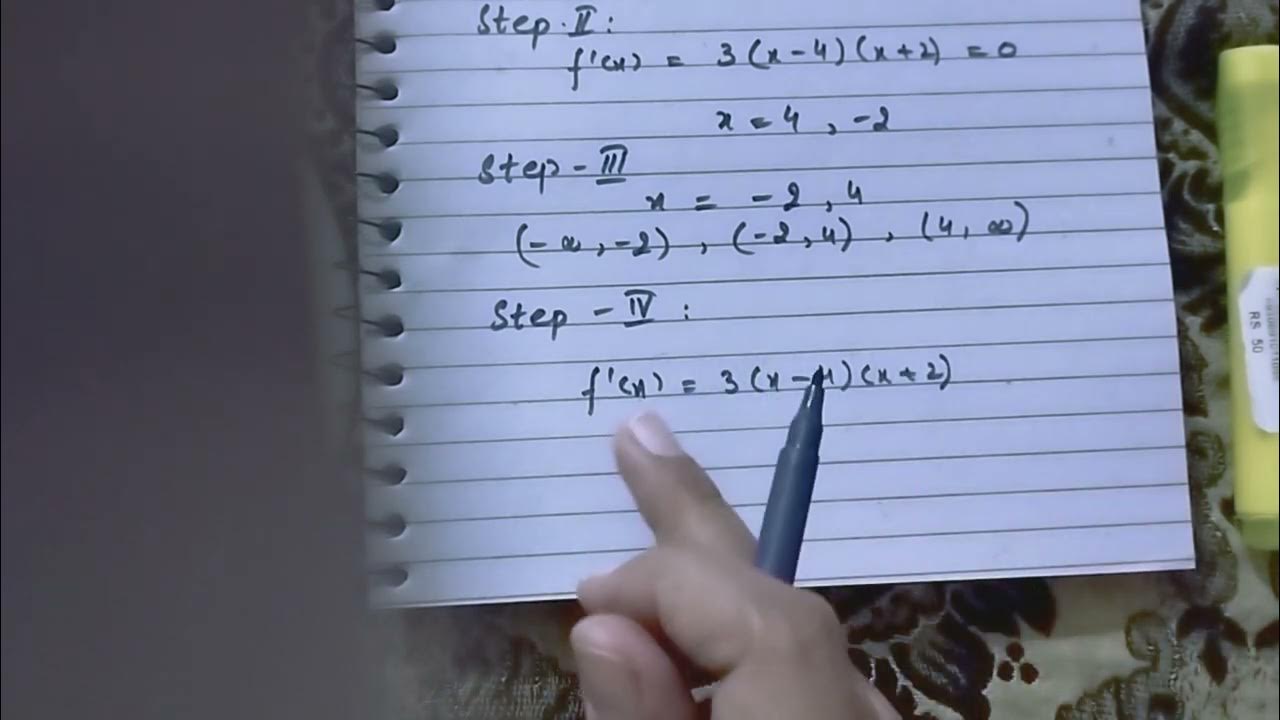 Step. II :
f'(x) = 3(x-4)(x+2) = 0
x = 4 , -2
Step - III
x = -2 , 4
(-∞ , -2) , (-2, 4) , (4, ∞)
Step - IV :
f'(x) = 3(x-4)(x+2)
RS 50